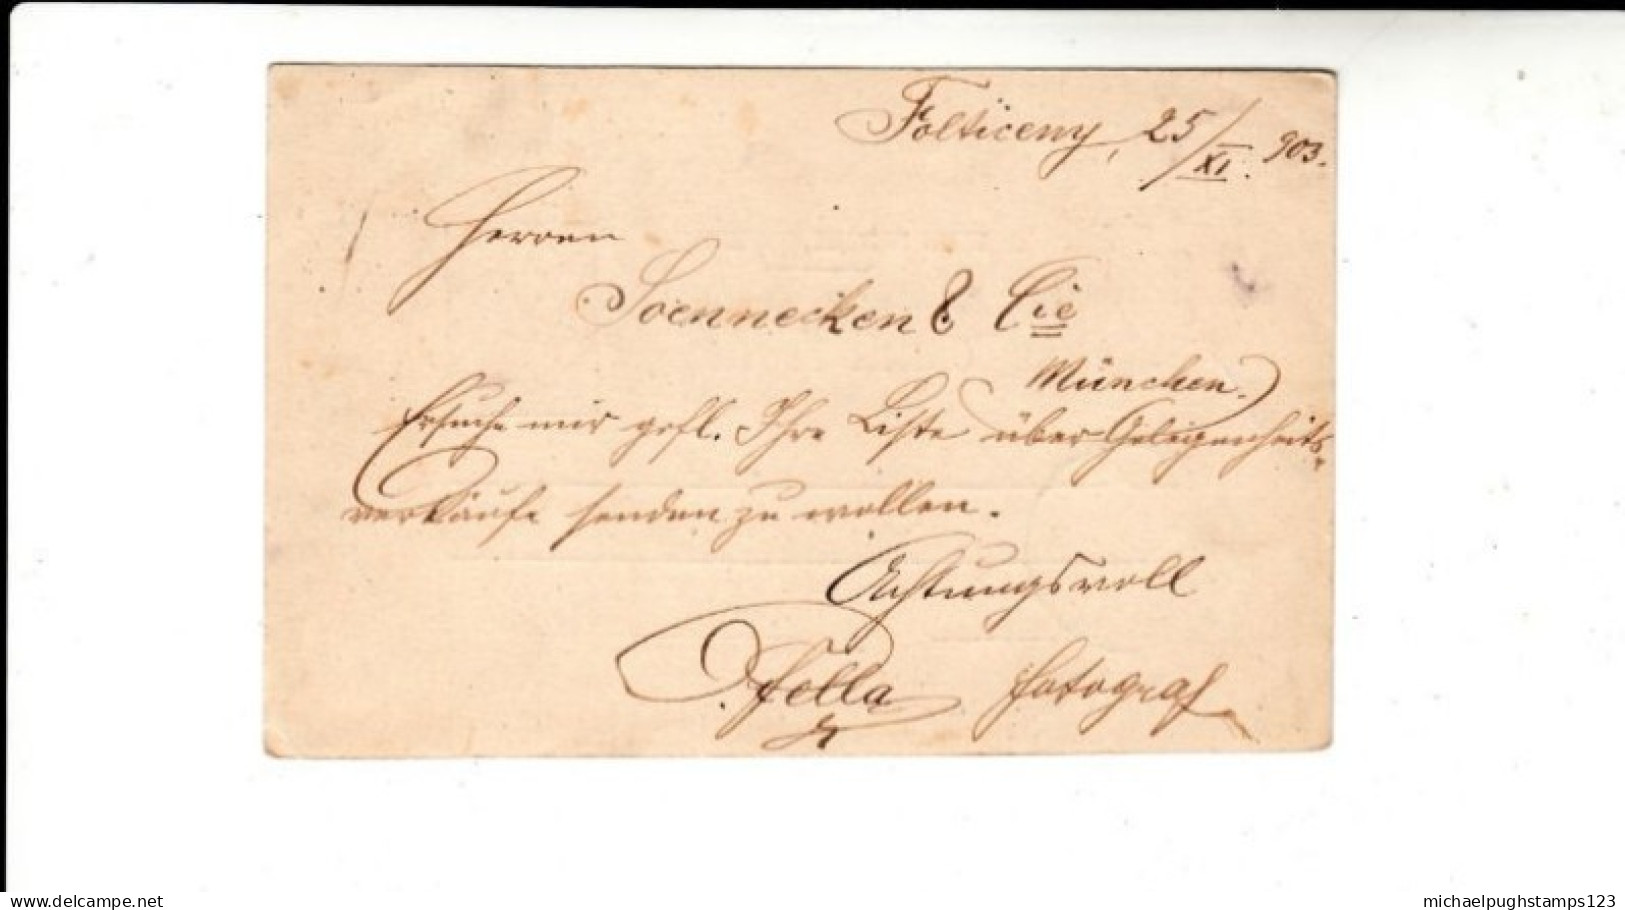 Folticeny, 25/XI. 903.
Herren
Soennecken & Cie
München.
Ersuche mir gefl. Ihre Liste über Gelegenheits-
verkäufe senden zu wollen.
Achtungsvoll
Fella Fotograf
delcampe.net
michaelpughstamps123